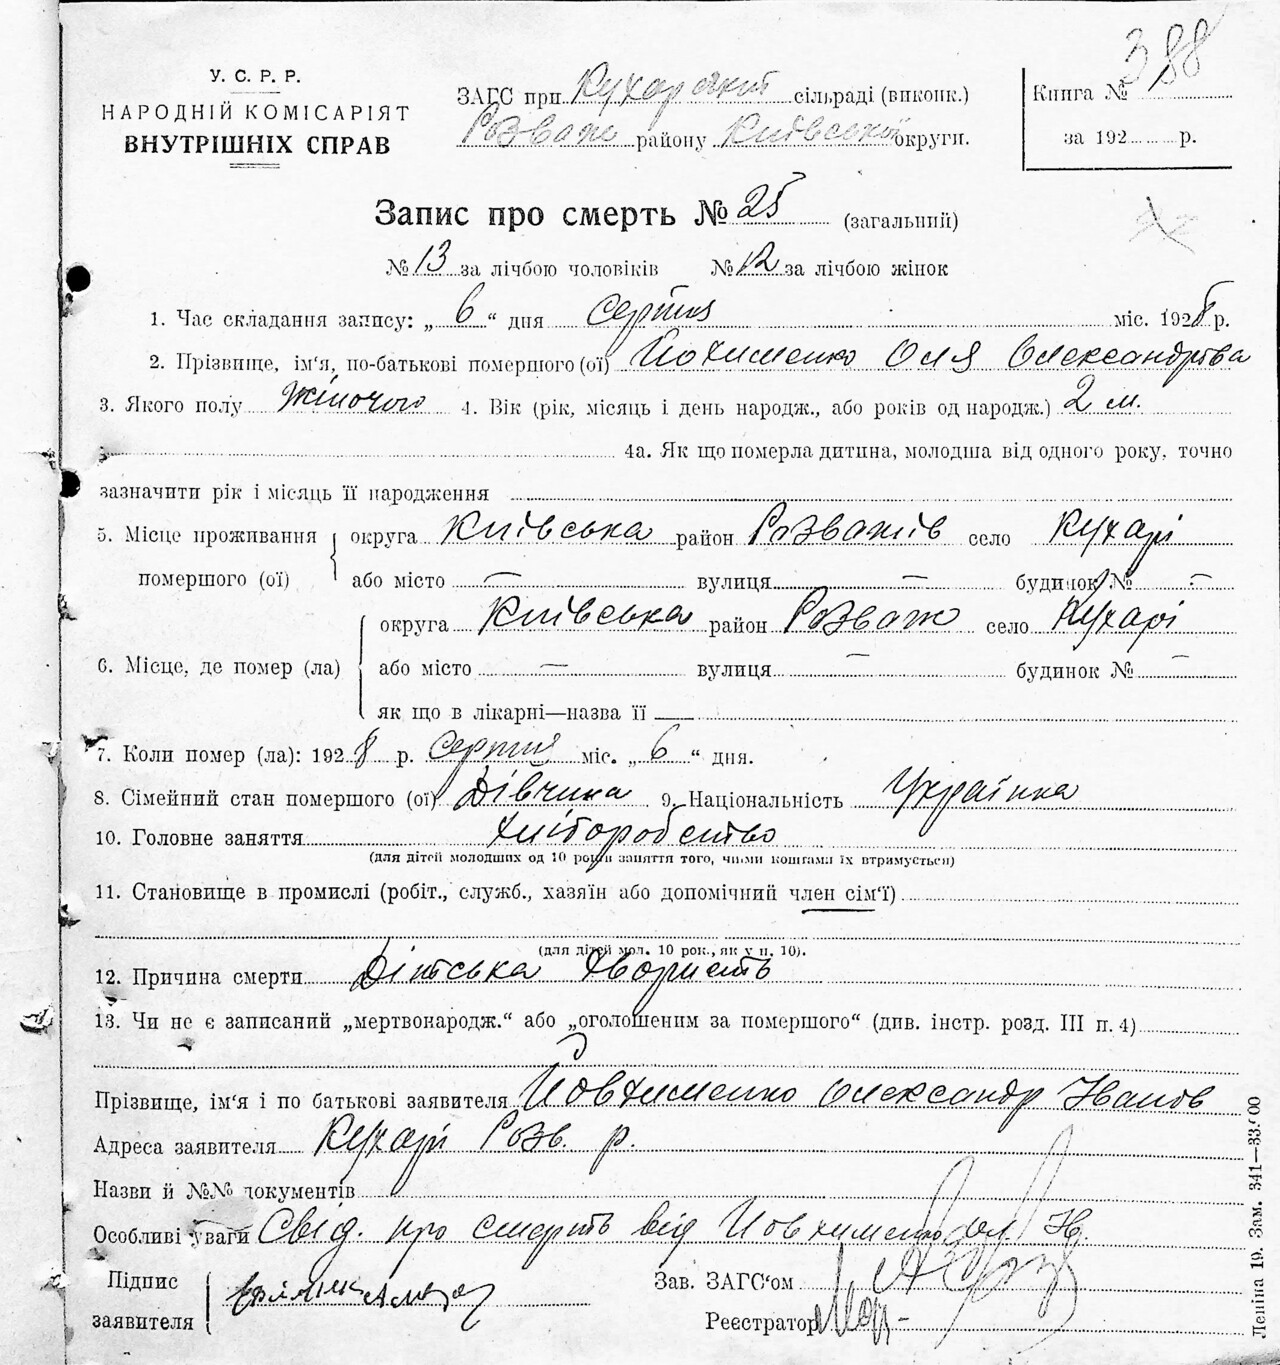 388
У. С. Р. Р.
НАРОДНІЙ КОМІСАРІЯТ
ВНУТРІШНІХ СПРАВ
ЗАГС при Кухарський сільраді (виконк.)
Розваж району Київської округи.
Книга №
за 192 р.
Запис про смерть № 25 (загальний)
№ 13 за лічбою чоловіків № 12 за лічбою жінок
1. Час складання запису: „ 6 “ дня Серпня міс. 1928 р.
2. Прізвище, ім‘я, по-батькові помершого (ої) Йохименко Оля Олександрівна
3. Якого полу Жіночого 4. Вік (рік, місяць і день народж., або років од народж.) 2 м.
4а. Як що померла дитина, молодша від одного року, точно
зазначити рік і місяць її народження
5. Місце проживання помершого (ої) округа Київська район Розважів село Кухарі
або місто — вулиця — будинок № —
6. Місце, де помер (ла) округа Київська район Розваж село Кухарі
або місто — вулиця — будинок № —
як що в лікарні—назва її —
7. Коли помер (ла): 1928 р. Серпня міс. „ 6 “ дня.
8. Сімейний стан помершого (ої) Дівчина 9. Національність Українка
10. Головне заняття Хліборобство
(для дітей молодших од 10 років заняття того, чиїми коштами їх втримується)
11. Становище в промислі (робіт., служб., хазяїн або допомічний член сім‘ї)
(для дітей мол. 10 рок., як у п. 10).
12. Причина смерти Дітська хвористь
13. Чи не є записаний „мертвонародж.“ або „оголошеним за помершого“ (див. інстр. розд. III п. 4)
Прізвище, ім‘я і по батькові заявителя Йовхименко Олександр Іванов
Адреса заявителя Кухарі Розв. р.
Назви й №№ документів
Особливі уваги Свід. про смерть від Йовхименко Ол. Ів.
Підпис заявителя
Зав. ЗАГС‘ом
Реєстратор
Леніна 19. Зам. 341—33.00